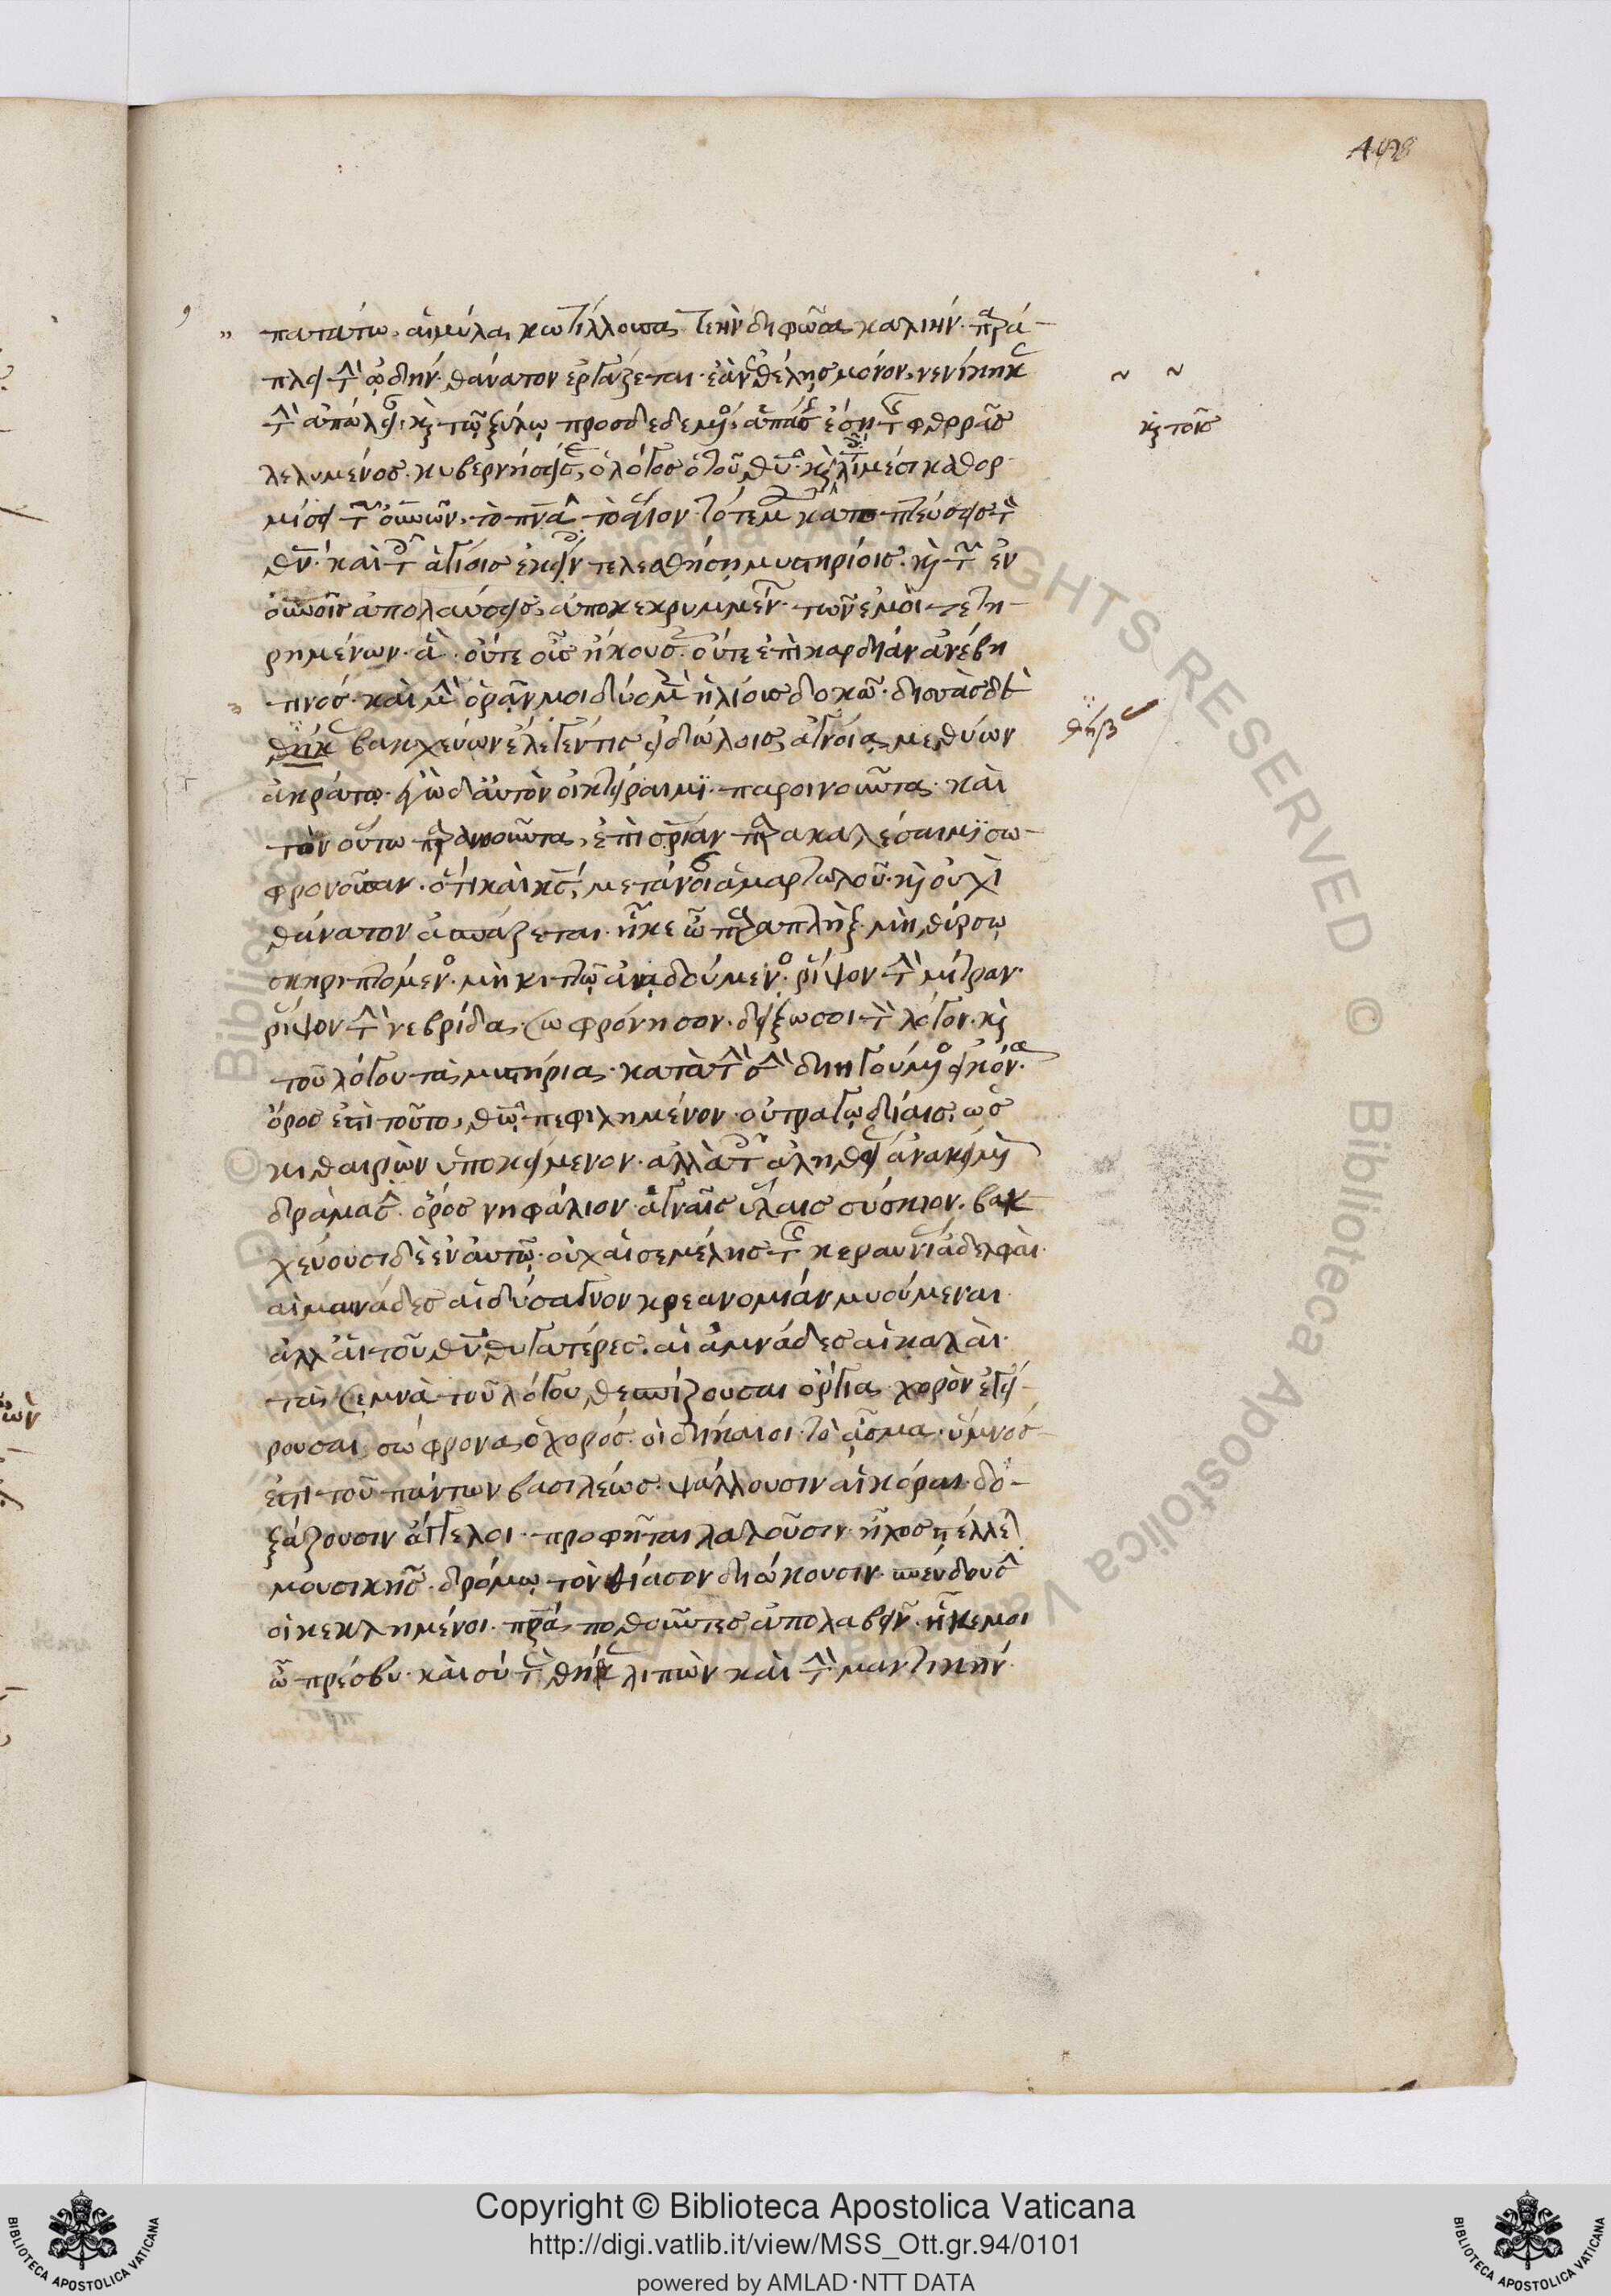 πατάτω. αἱμύλα κωτίλλουσα τεὴν διφῶσα καλιήν. παρά-
πλει τὴν ᾠδήν. θάνατον ἐργάζεται. ἐὰν θέλῃς μόνον, νενίκηκας
τὴν ἀπώλειαν. καὶ τῷ ξύλῳ προσδεδεμένος, ἁπάσης ἔσῃ τῆς φθορᾶς
λελυμένος. κυβερνήσει σε, ὁ λόγος ὁ τοῦ θυ. καὶ τοῖς λιμέσι καθορ-
μίσει τῶν οὐνῶν, τὸ πνα τὸ ἅγιον. τότε μου κατοπτεύσεις τὸν
θν. καὶ τοῖς ἁγίοις ἐκείνοις τελεσθήσῃ μυστηρίοις. καὶ τῶν ἐν
οὐνοῖς ἀπολαύσεις, ἀποκεκρυμμένων. τῶν ἐμοὶ τετη-
ρημένων. ἃ οὔτε οὖς ἤκουσεν. οὔτε ἐπὶ καρδίαν ἀνέβη
τινός. καὶ μὴν ὁρᾶν μοι δύο μὲν ἡλίους δοκῶ. δισσὰς δὲ
θήκας βακχεύων ἔλεγέν τις εἰδώλοις, ἀγνοίᾳ μεθύων
ἀκράτῳ. ἐγὼ δ' αὐτὸν οἰκτείραιμι παροινοῦντα. καὶ
τὸν οὕτω παρανοοῦντα, ἐπὶ σριαν παρακαλέσαιμι σω-
φρονοῦσαν. ὅτι καὶ κς, μετάνοιαν ἁμαρτωλοῦ. καὶ οὐχὶ
θάνατον ἀσπάζεται. ἧκε ὦ παραπλὴξ. μὴ θύρσῳ
σκηριπτόμενος. μὴ κιττῷ ἀναδούμενος. ῥῖψον τὴν μίτραν.
ῥῖψον τὴν νεβρίδα, σωφρόνησον. δείξω σοι τὸν λόγον. καὶ
τοῦ λόγου τὰ μυστήρια. κατὰ τὴν σὴν διηγούμενος εἰκόνα.
ὄρος ἐστὶ τοῦτο, θῷ πεφιλημένον. οὐ τραγῳδίαις, ὡς
κιθαιρὼν ὑποκείμενον. ἀλλὰ τοῖς ἀληθείας ἀνακείμενον
δράμασιν. ὄρος νηφάλιον. ἁγναῖς ὕλαις σύσκιον. βακ-
χεύουσι δὲ ἐν αὐτῷ. οὐχ αἱ σεμέλης τῆς κεραυνίας ἀδελφαὶ.
αἱ μαινάδες αἱ δύσαγνον κρεανομίαν μυούμεναι.
ἀλλ' αἱ τοῦ θυ θυγατέρες. αἱ ἀμνάδες αἱ καλαὶ.
τὰ σεμνὰ τοῦ λόγου θεσπίζουσαι ὄργια. χορὸν ἐγεί-
ρουσαι σώφρονα. ὁ χορός. οἱ δίκαιοι. τὸ ᾆσμα. ὕμνος
ἐστὶ τοῦ πάντων βασιλέως. ψάλλουσιν αἱ κόραι. δο-
ξάζουσιν ἄγγελοι. προφῆται λαλοῦσιν. ἦχος στέλλεται
μουσικῆς. δρόμῳ τὸν θίασον διώκουσιν. σπεύδουσιν
οἱ κεκλημένοι. πρα ποθοῦντες ἀπολαβεῖν. ἧκέ μοι
ὦ πρέσβυ. καὶ σὺ τὰς θήκας λιπὼν καὶ τὴν μαντικὴν.
καὶ τοῖς
θήβας